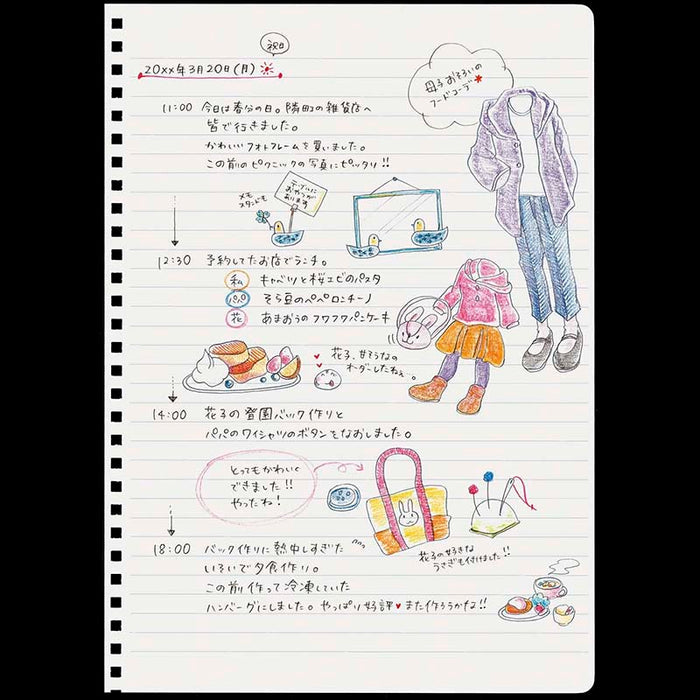 祝日
20xx年3月20日(月)
母子おそろいの
フードコーデ*
11:00 今日は春分の日。隣町の雑貨店へ
皆で行きました。
かわいいフォトフレームを買いました。
この前のピクニックの写真にピッタリ!!
メモ
スタンドも
テーブルに
おやつが
あります
12:30 予約してたお店でランチ。
私 キャベツと桜エビのパスタ
パパ そら豆のペペロンチーノ
花 あまおうのフワフワパンケーキ
♥ 花子、甘そうなの
♥ オーダーしたねぇ…。
14:00 花子の登園バック作りと
パパのワイシャツのボタンをなおしました。
とってもかわいく
できました!!
やったね!
花子の好きな
うさぎも付けました!!
18:00 バック作りに熱中しすぎた
いそいで夕食作り。
この前作って冷凍していた
ハンバーグにしました。やっぱり好評♥また作ろうかな!!